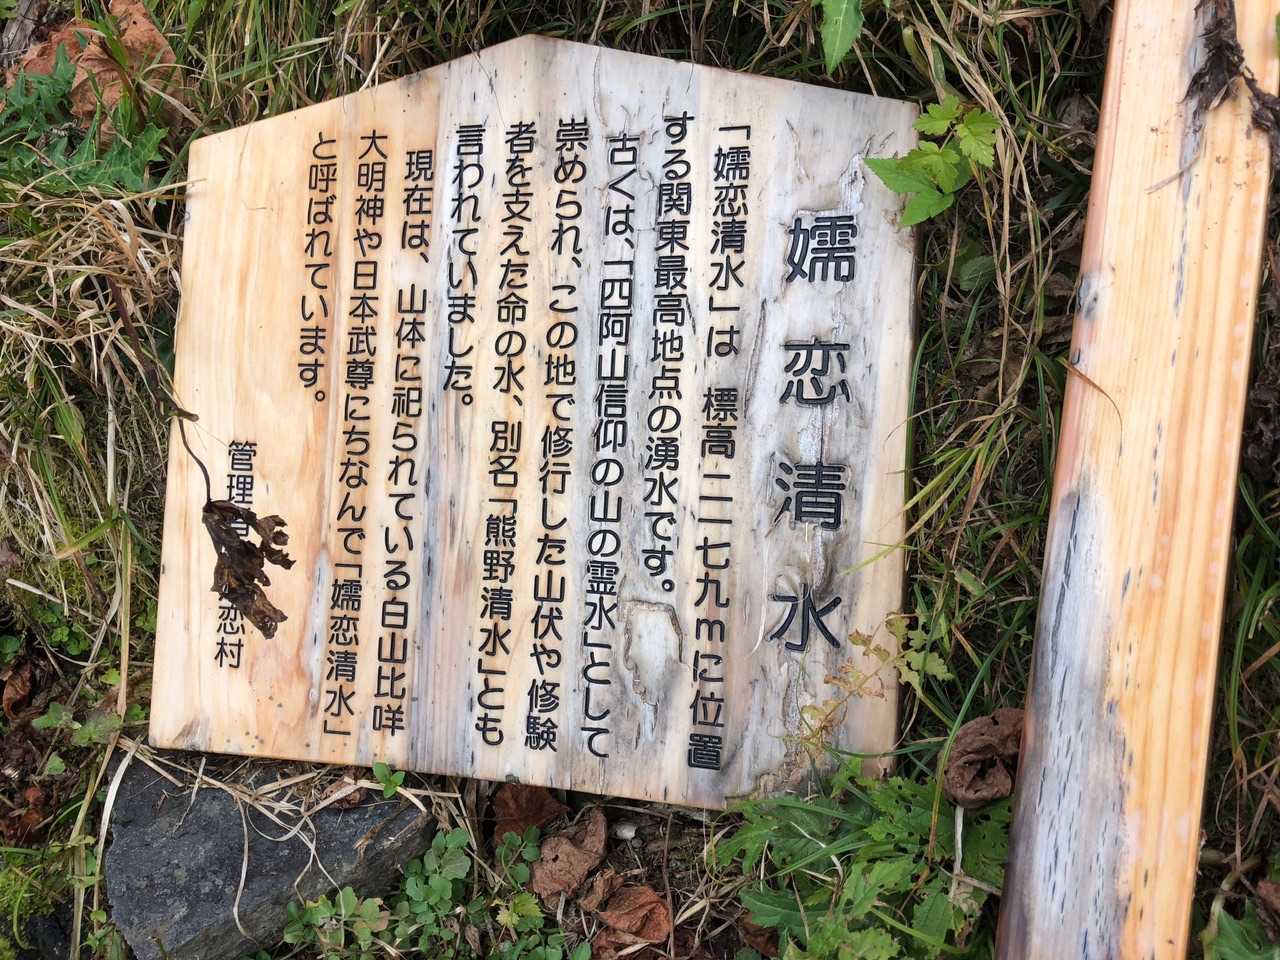 嬬恋清水
「嬬恋清水」は 標高二一七九mに位置
する関東最高地点の湧水です。
古くは、「四阿山信仰の山の霊水」として
崇められ、この地で修行した山伏や修験
者を支えた命の水、別名「熊野清水」とも
言われていました。
現在は、山体に祀られている白山比咩
大明神や日本武尊にちなんで「嬬恋清水」
と呼ばれています。
管理者 恋村